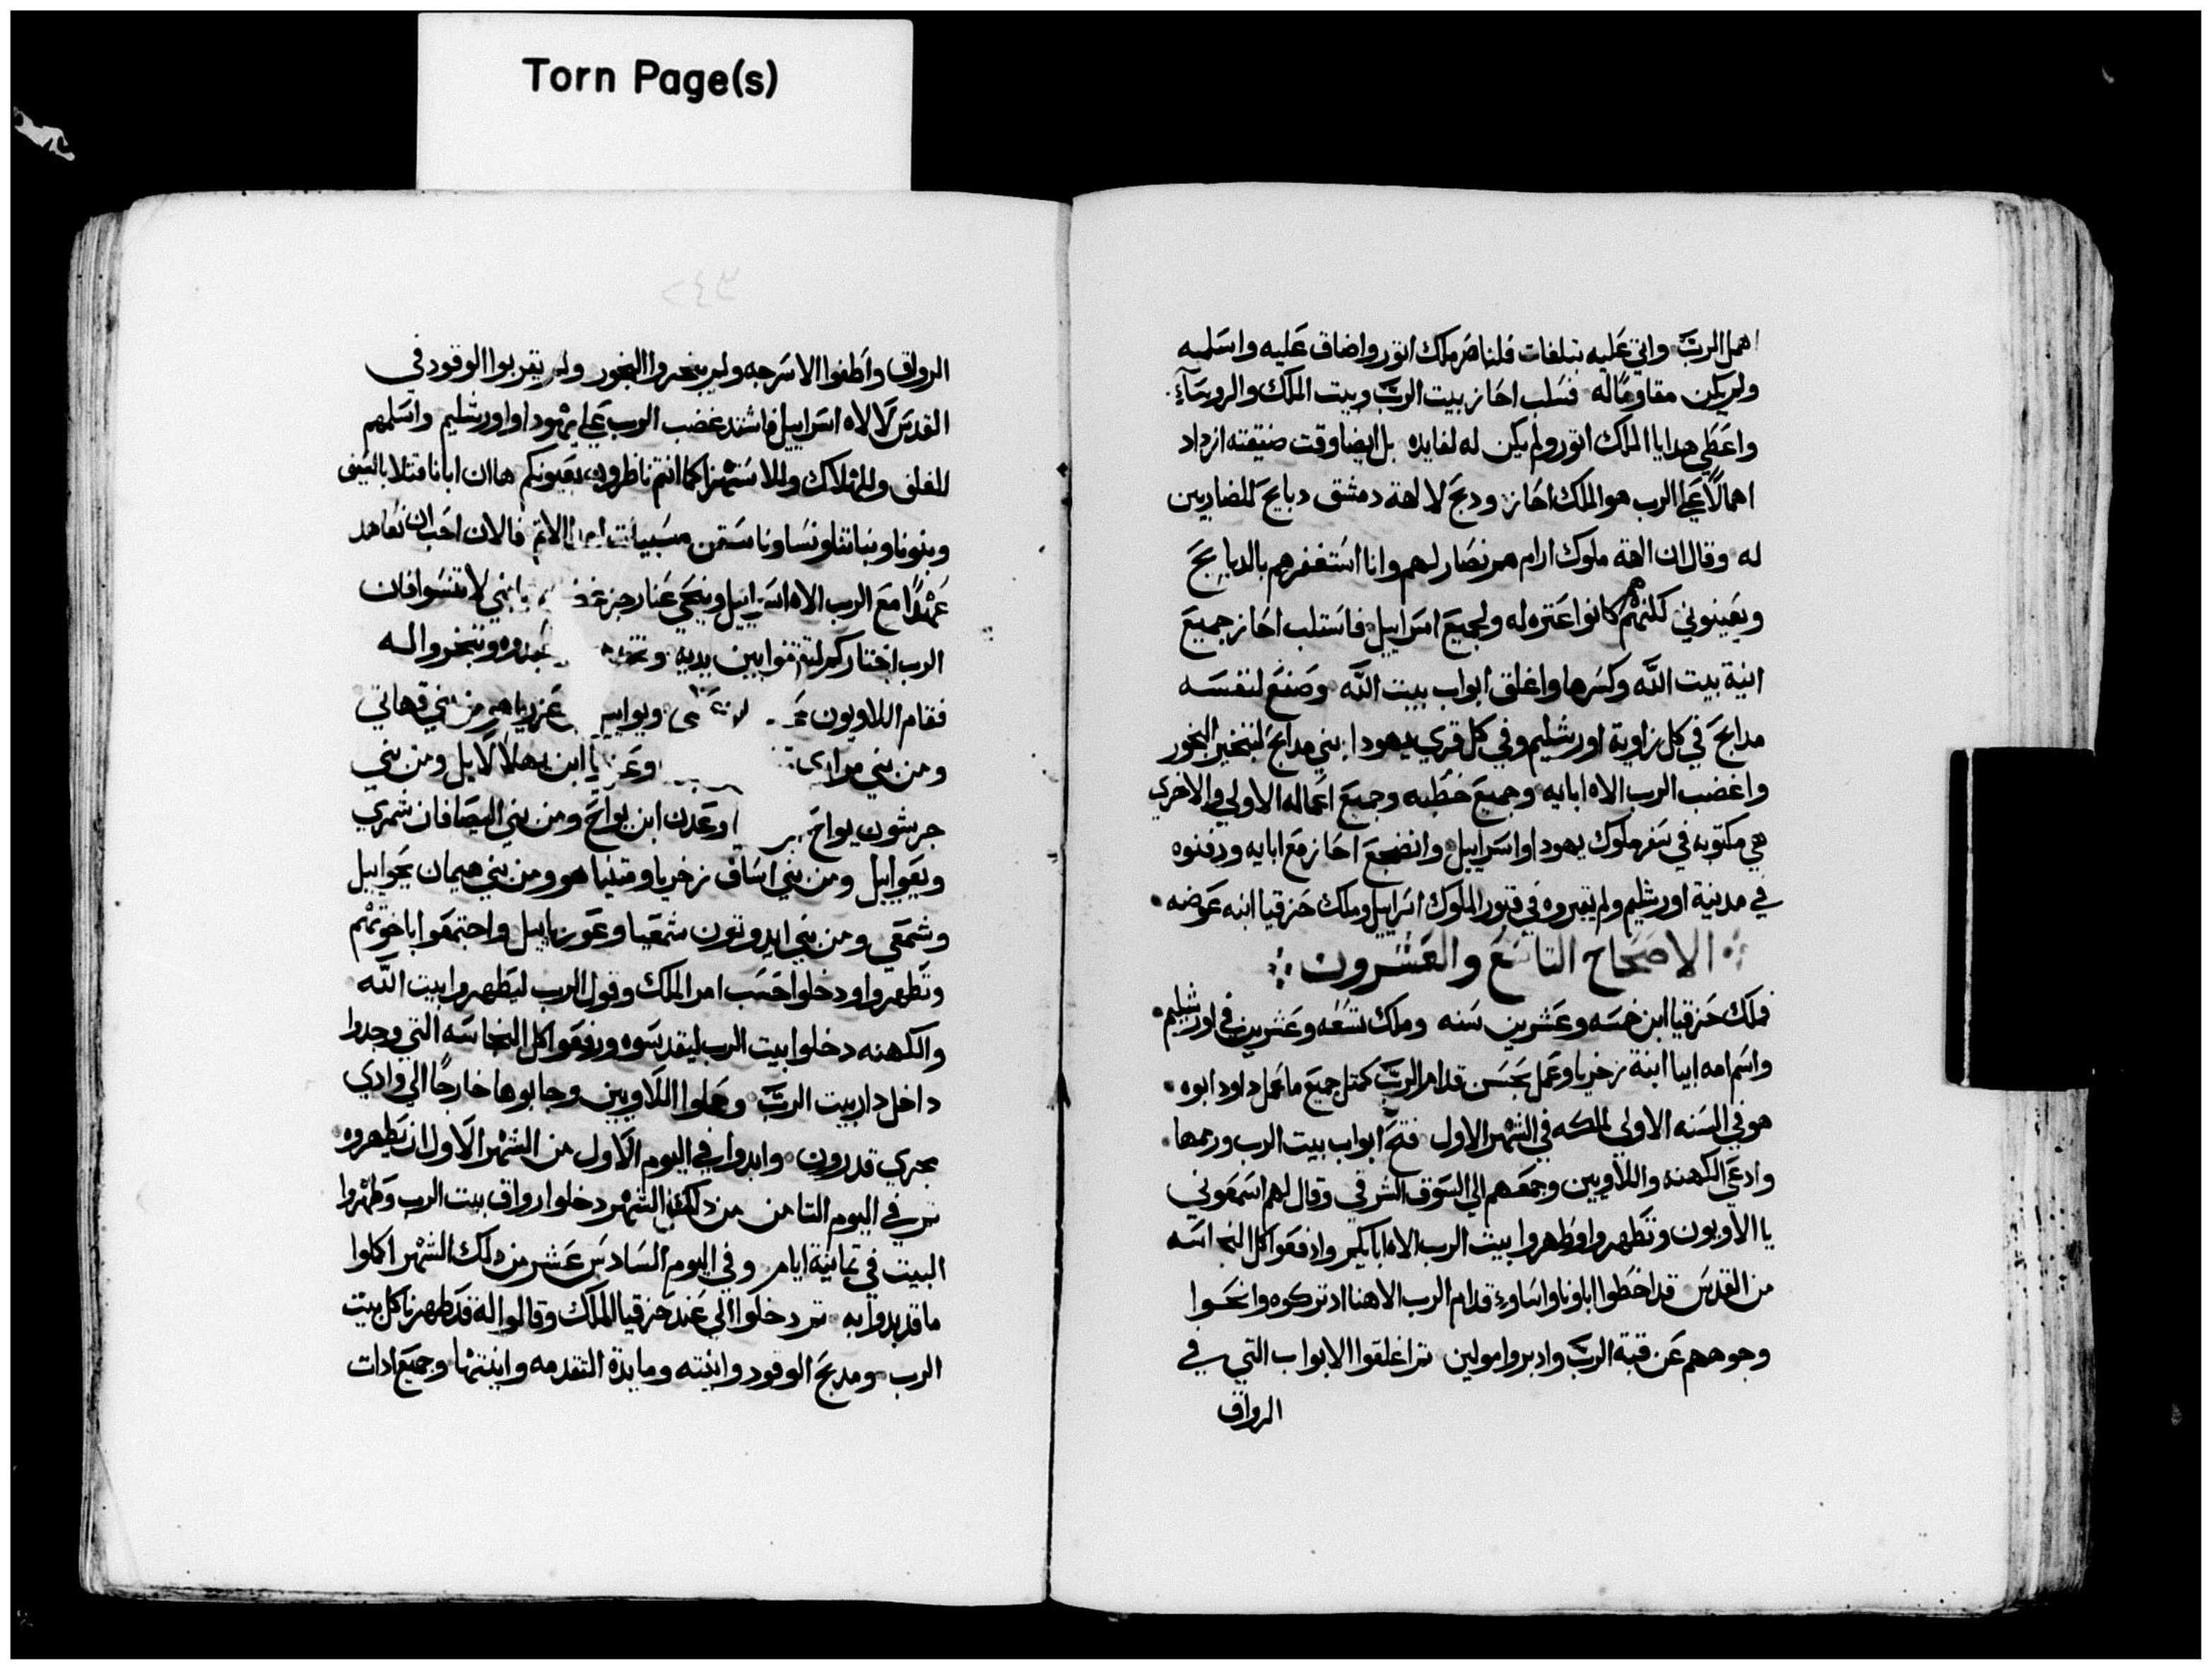 Torn Page(s)
اهمل الربّ واتى عليه تبلغات فلناصر ملك اتور واضاق عليه واسلبه
ولم يكن مقاومًا له فسلب احاز بيت الربّ وبيت الملك والروسآء
واعطي هدايا الملك اتور ولم يكن له لفايده بل ايضا وقت ضيقته ازداد
اهمالاً على الرب هو الملك احاز ودبح لالهة دمشق دبايح للضاربين
له وقال ان الهة ملوك ارام هم نصار لهم وانا استغفرهم بالدبايح
ويعينوني لكنهم هم كانوا عتره له ولجميع اسراييل فاستلب احاز جميع
انية بيت اللّه وكسرها واغلق ابواب بيت اللّه وصنع لنفسه
مدابح في كل زاوية اورشليم وفي كل قري يهودا بني مدابح لتبخير البخور
واغضب الرب الاه ابايه وجميع خطبه وجميع اعماله الاولي والاخري
هي مكتوبه في سفر ملوك يهودا واسراييل وانضجع احاز مع ابايه ودفنوه
في مدينة اورشليم ولم تقبروه في قبور الملوك اسراييل وملك حزقيا ابنه عوضه
الاصحاح التاسع والعشرون
فملك حزقيا ابن خمسه وعشرين سنه وملك تسعه وعشرين في اورشليم
واسم امه ابيا ابنة زخريا وعمل بحسن قدام الربّ كمتل جميع ما عمل داود ابوه
هو في السنه الاولي لملكه في الشهر الاول فتح ابواب بيت الرب ورمها
وادعي الكهنه واللاويين وجمعهم الي السوق الشرقي وقال لهم اسمعوني
يا الاويون وتطهروا وطهروا بيت الرب الاه ابايكم وارفعوا كل النجاسه
من القدس قد اخطوا اباونا واساوء قدام الرب الاهنا اد تركوه وانحوا
وجوههم عن قبة الربّ وادبروا مولين تم اغلقوا الابواب التي في
الرواق
٣٤٢
الرواق واطفوا الاسرجه ولم يبخروا البخور ولم يقربوا الوقود في
القدس لالاه اسراييل فاشتد غضب الرب علي يهودا واورشليم واسلمهم
للقلق وللهلاك وللاستهزا كما انتم ناظرون بعيونكم ها ان ابانا قتلا بالسيف
وبنونا وبناتنا ونساونا ستمن مسبيات الاتم فالان احب ان نعاهد
عهدًا مع الرب الاه اسراييل وينحي عنا رجز يا بني لا تنسوا فان
الرب اختاركم لتقفوا بين يديه وتبخروا له
فقام اللاويون ويواييل عزريا هو من بني قهاتي
ومن بني مراري وعزريا ابن يهلالاييل ومن بني
جرشون يواح وعدن ابن يواح ومن بني اليصافان شمري
ويعواييل ومن بني اساف زخريا ومتنيا هو ومن بني هيمان يحواييل
وشمعي ومن بني ايدوتون شمعيا وعوزياييل واجتمعوا باخوتهم
وتطهروا ودخلوا حسب امر الملك وقول الرب ليطهروا بيت اللّه
والكهنه دخلوا بيت الرب ليقدسوه ورفعوا كل النجاسه التي وجدوا
داخل دار بيت الربّ وحملوا اللاويين وجابوها خارجًا الي وادي
مجري قدرون وابدوا في اليوم الاول من الشهر الاول ان يطهروه
تم في اليوم التامن من دلك الشهر دخلوا رواق بيت الرب وطهروا
البيت في تمانية ايام وفي اليوم السادس عشر من دلك الشهر اكملوا
ما قد بدوا به تم دخلوا الي عند حزقيا الملك وقالوا له قد طهرنا كل بيت
الرب ومدبح الوقود وانيته ومايدة التقدمه وانيتها وجميع ادات